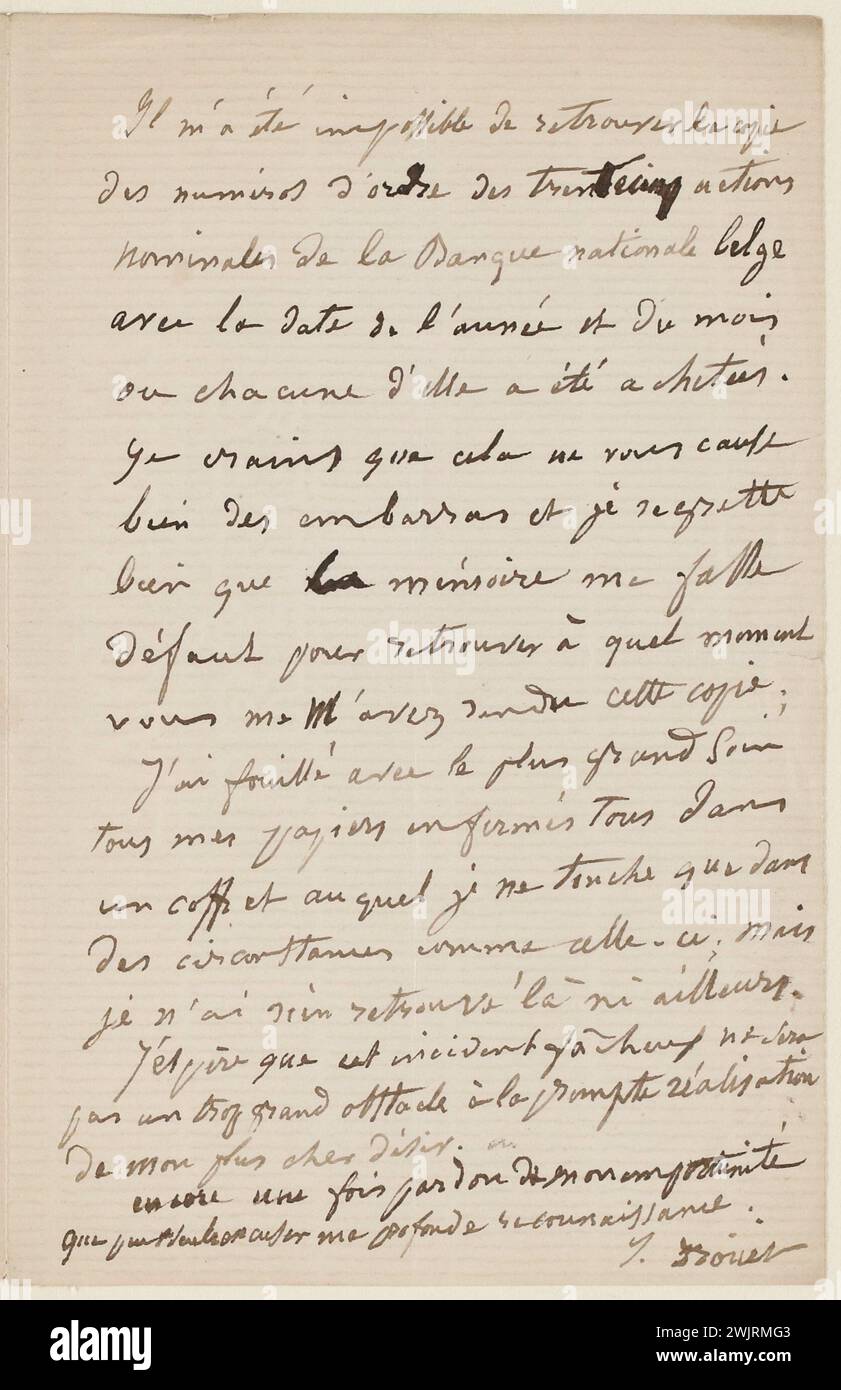 Il m'a été impossible de retrouver la copie
des numéros d'ordre des trente cinq actions
nominales de la Banque nationale belge
avec la date de l'année et du mois
ou chacune d'elle a été achetées.
Je crains que cela ne vous cause
bien des embarras et je regrette
bien que la mémoire me fasse
défaut pour retrouver à quel moment
vous me m'avez rendu cette copie;
J'ai fouillé avec le plus grand soin
tous mes papiers enfermés tous dans
un coffret auquel je ne touche que dans
des circonstances comme celle-ci; mais
je n'ai rien retrouvé là ni ailleurs.
J'espère que cet incident fâcheux ne sera
pas un trop grand obstacle à la prompte réalisation
de mon plus cher désir.
encore une fois pardon de mon importunité
que peut seule excuser ma profonde reconnaissance.
J. Drouet
alamy
Image ID: 2WJRMG3
www.alamy.com